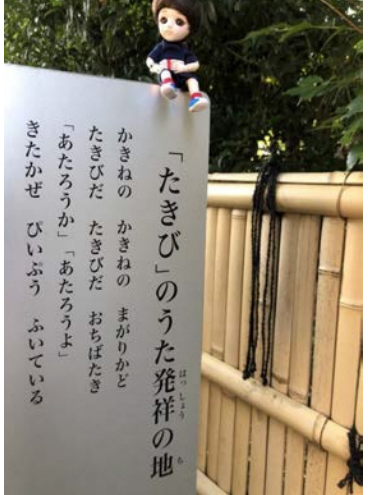 「たきび」のうた発祥の地
はっしょう
ち
かきねの　かきねの　まがりかど
たきびだ　たきびだ　おちばたき
「あたろうか」「あたろうよ」
きたかぜ　ぴいぷう　ふいている